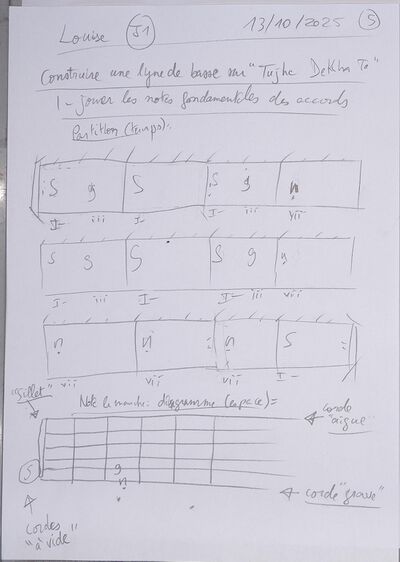 Louise J1 13/10/2025 S
Construire une lyne de basse sur "Tujhe Dekha To"
1- jouer les notes fondamentales des accords
Partition (temps):
S g S S g n
I- iii I- I- iii vii
S g S S g g
I- iii I- I- iii vii
n n n S
vii vii vii I-
"Sillet" Note le manche: diagramme (espace)=
corde "aigue"
S g
n
corde "grave"
cordes
"à vide"